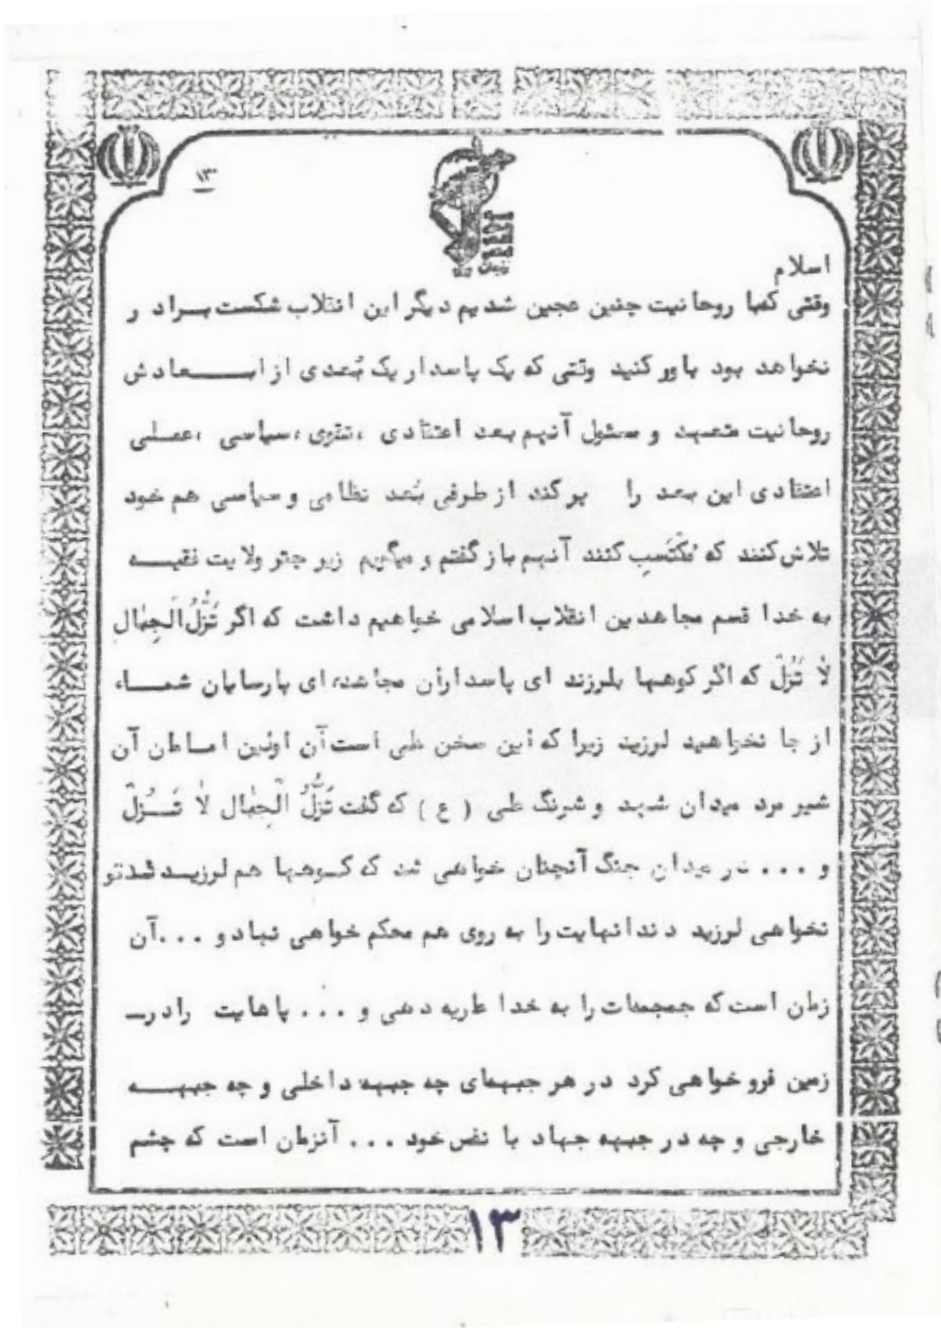 ۱۳
اسلام
وقتی که با روحانیت چنین عجین شدیم دیگر این انقلاب شکست بردار
نخواهد بود باور کنید وقتی که یک پاسدار یک بُعدی از ابعادش
روحانیت متعهد و مسئول آنهم بعد اعتقادی ، تقوی ، سیاسی ، عملی
اعتقادی این بعد را پر کند از طرفی بُعد نظامی و سیاسی هم خود
تلاش کنند که مُکتَسِب کنند آنهم باز گفتم و میگویم زیر چتر ولایت فقیه
به خدا قسم مجاهدین انقلاب اسلامی خواهیم داشت که اگر تَزُلُ الجِبال
لا تَزُل که اگر کوهها بلرزند ای پاسداران مجاهد، ای پارسایان شما،
از جا نخواهید لرزید زیرا که این سخن علی است آن اولین امامان آن
شیر مرد میدان شهید و شرنگ علی ( ع ) که گفت تَزُلُ الجِبال لا تَزُل
و ... در میدان جنگ آنچنان خواهی شد که کوهها هم لرزید شد تو
نخواهی لرزید دندانهایت را به روی هم محکم خواهی نهاد و ... آن
زمان است که جمجمات را به خدا عاریه دهی و ... پاهایت را در
زمین فرو خواهی کرد در هر جبهه‌ای چه جبهه داخلی و چه جبهه
خارجی و چه در جبهه جهاد با نفس خود ... آنزمان است که چشم
۱۳